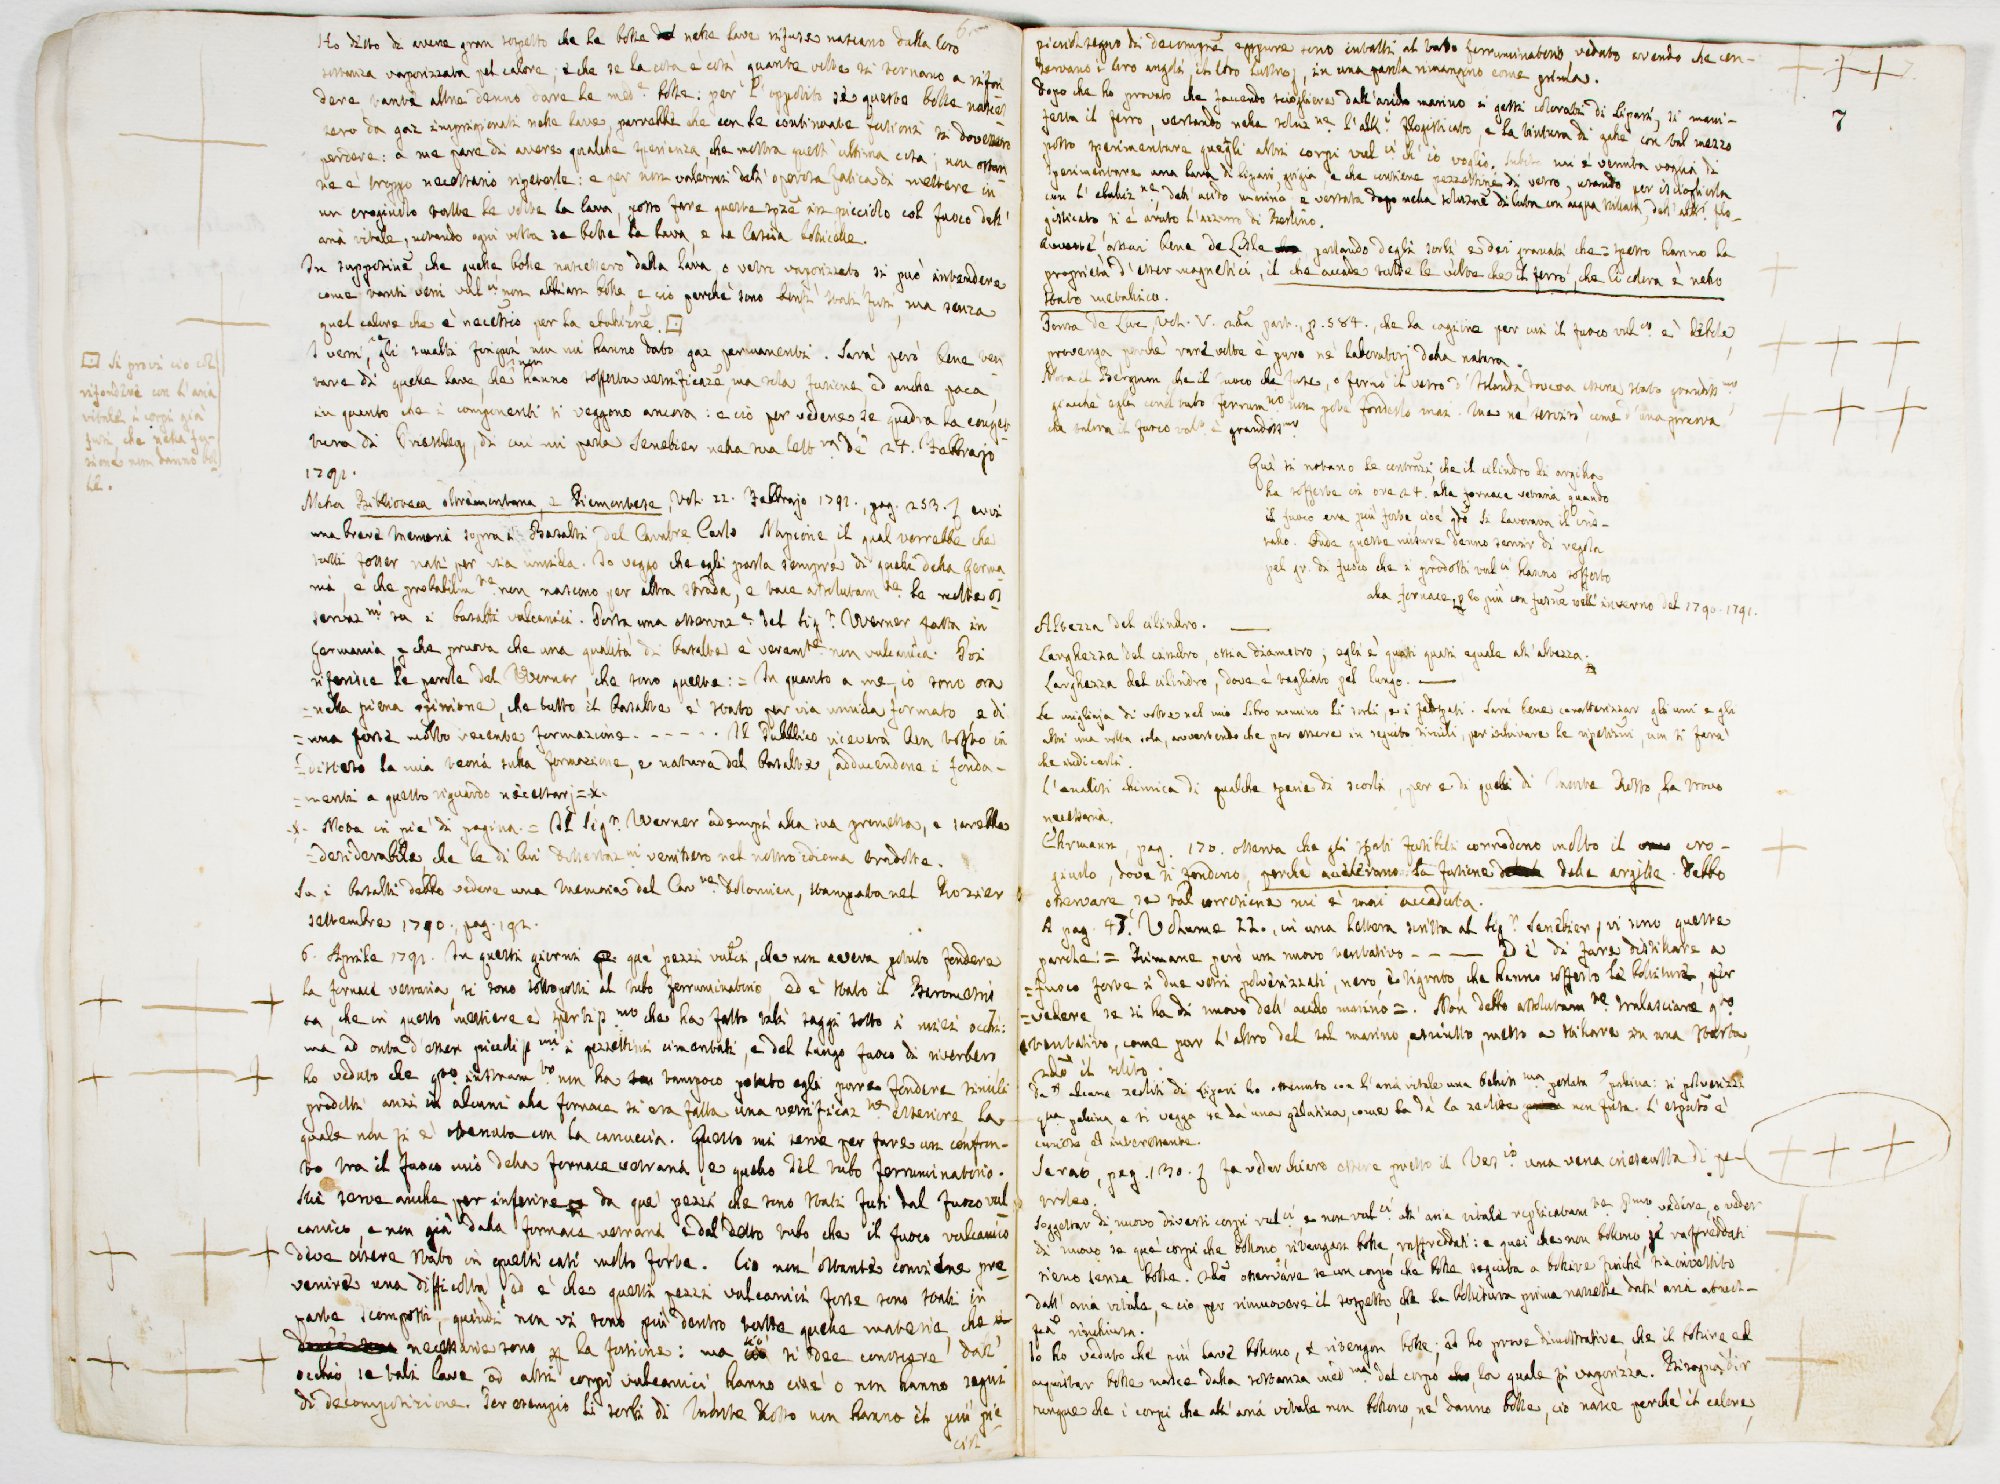 Ho detto di avere gran sospetto che le bolle nelle lave rifuse nascano dalla loro
sostanza vaporizzata pel calore; e che se la cosa è così quante volte si tornano a rifon
dere tante altre denno dare le med.e bolle: per l'opposito se queste bolle nasces
sero da gaz imprigionati nelle lave, parrebbe che con le continuate fusioni si dovessero
perdere: a me pare di avere qualche sperienza, che mostra quest'ultima cosa; non ostan
te è troppo necessario ripeterle: e per non valermi dell'operosa fatica di mettere in
un crogiuolo tutte le volte la lava, posso fare queste spze in picciolo col fuoco dell'
aria vitale, notando ogni volta se bolle la lava, e se lascia bollicelle.
In supposine, che quelle bolle nascessero dalla lava, o vetro vaporizzato si può intendere
come tanti vetri vul.ci non abbiano bolle, e ciò perchè sono bensì stati fusi, ma senza
quel calore che è necessrio per la ebullizne.
I vetri, e gli smalti fin qui non mi hanno dato gaz permanenti. Sarà però bene ten
tare di quelle lave, che non hanno sofferta vetrificaze, ma sola fusione, ed anche poca,
in quanto che i componenti si veggono ancora: e ciò per vedere se quadra la conget
tura di Priestley, di cui mi parla Senebier nella sua lett.ra de' 24. Febbrajo
1791.
Nella Biblioteca oltremontana, e Piemontese, Vol. 22. Febbrajo 1791., pag. 253. f evvi
una breve Memoria sopra i Basalti del Cavalre Carlo Napione il qual vorrebbe che
tutti fosser nati per via umida. Io veggo che egli parla sempre di quelli della Germa
nia, e che probabilm.te non nascono per altra strada, e tace assolutam.te le molte os
servaz.ni su i basalti vulcanici. Porta una osservaz.e del Sig.r Werner fatta in
Germania, e che pruova che una qualità di basalte è veram.te non vulcanica. Poi
riferisce le parole del Werner, che sono queste: = In quanto a me, io sono ora
=nella piena opinione, che tutto il basalte è stato per via umida formato e di
=una forse molto recente formazione. - - - - - . Il Pubblico riceverà ben tosto in
=disteso la mia teoria sulla formazione, e natura del basalte, adducendone i fonda-
=menti a questo riguardo necessarj =*.
* Nota in piè di pagina. = Il Sig.r Werner adempì alla sua promessa, e sarebbe
=desiderabile che le di lui dissertaz.ni venissero nel nostro idioma tradotte.
Su i basalti debbo vedere una Memoria del Cav.re Dolomieu, stampata nel Rozier
settembre 1790., pag. 192.
6. Aprile 1791. In questi giorni que' pezzi vulci, che non aveva potuto fondere
la fornace vetraria, si sono sottoposti al tubo ferruminatorio, ed è stato il Barometri
sta, che in questo mestiere è spertiss.mo che ha fatto tali saggi sotto i miei occhi:
ma ad onta d'esser picciliss.mi i pezzettini cimentati, e del lungo fuoco di riverbero
ho veduto che q.to instrum.to non ha tampoco potuto egli pure fondere simili
prodotti anzi in alcuni alla fornace si era fatta una vetrificaz.ne esteriore la
quale non si è ottenuta con la cannuccia. Questo mi serve per fare un confron-
to tra il fuoco mio della fornace vetraria, e quello del tubo ferruminatorio.
Mi serve anche per inferire da que' pezzi, che sono stati fusi dal fuoco vul
canico, e non già dalla fornace vetraria e dal detto tubo che il fuoco vulcanico
deve essere stato in questi casi molto forte. Ciò non ostante conviene pre
venire una difficoltà, ed è che questi pezzi vulcanici forse sono stati in
parte scomposti, quindi non vi sono più dentro tutte quelle materie, che
necessarie sono per la fusione: ma ciò si dee conoscere dall'
occhio se tali lave ed altri corpi vulcanici hanno essi o non hanno segni
di decomposizione. Per esempio li sorli di Monte Rosso non hanno il più pic
ciol
Si provi ciò col
rifondere con l'aria
vitale i corpi già
fusi che nella fu-
sione non danno bol
le.
7
picciol segno di decompne eppure sono intatti al tubo ferruminatorio veduto avendo che con-
servano i loro angoli, il loro lustro, in una parola rimangono come prima.
Dopo che ho provato che facendo sciogliere dall'acido marino i gessi colorati di Lipari, si mani-
festa il ferro, versando nella soluz.ne l'alk.i flogisticato, e la tintura di galle con tal mezzo
posso sperimentare quegli altri corpi vul.ci ch'io voglio. Subito mi è venuta voglia di
sperimentare una lava di Lipari, grigia, e che contiene pezzettini di vetro, usando per discioglierla
con l'ebulliz.ne, dell'acido marino e versata dopo nella soluzne diluta con acqua stillata, dell'alk.i flo-
gisticato si è avuto l'azzurro di Berlino.
Avverte assai bene de Lisle parlando degli sorli e dei granati che = spesso hanno la
proprietà d'esser magnetici, il che accade tutte le volte che il ferro, che li colora è nello
stato metallico.
Porta de Luc, Vol. V. 2da part., p. 584., che la cagione per cui il fuoco vul.co è debole,
provenga perchè rare volte è puro ne' laboratorj della natura.
Nota il Bergman che il fuoco che fuse, o formò il vetro d'Islanda doveva essere stato grandiss.mo
giacchè egli con il tubo ferrum.rio non potè fonderlo mai. Me ne servirò come d'una pruova
che talora il fuoco vul.co è grandiss.mo
Qui si notano le contrazni, che il cilindro di argilla
ha sofferte in ore 24. alla fornace vetraria quando
il fuoco era più forte cioè qdo si lavorava il cris-
tallo. Onde queste misure denno servir di regola
pel gr. di fuoco che i prodotti vul.ci hanno sofferto
alla fornace, lo più con fusne nell'inverno del 1790-1791.
Altezza del cilindro. —
Larghezza del cilindro, ossia diametro; egli è quasi quasi eguale all'altezza.
Larghezza del cilindro, dove è tagliato pel lungo. —
Le migliaja di volte nel mio libro nomino li sorli, e i feldspati. Sarà bene caratterizzar gli uni e gli
altri una volta sola, avvertendo che per essere in seguito simili, per ischivare le ripetizni, non si farà
che indicarli.
L'analisi chimica di qualche specie di scorli, per e. di quelli di Monte Rosso, la trovo
necessaria.
Ehrmann, pag. 170. osserva che gli spati fusibili corrodono molto il cro-
giuolo, dove si fondono, perchè accelerano la fusione delle argille. Debbo
osservare se tal corrosione mi è mai accaduta.
A pag. 47. Volume II., in una lettera scritta al Sig.r Senebier, vi sono queste
parole: = Rimane però un nuovo tentativo - - - Ed è di fare distillare a
=fuoco forte i due vetri polverizzati, nero, e tigrato, che hanno sofferto le bolliture, per
=vedere se si ha di nuovo dell'acido marino =. Non debbo assolutam.te tralasciare q.to
tentativo, come pur l'altro del sal marino, asciutto, messo a stillare in una storta,
sdo il solito.
Da alcune zeoliti di Lipari ho ottenuto con l'aria vitale una bolliss.ma perlata gelatina: si polverizzi
q.ta gelatina, e si vegga se dà una gelatina, come la dà la zeolite non fusa. L'esputo è
curioso ed interessante.
Serao, pag. 130. f fa veder chiaro essere presso il Ves.io una vena inesausta di pe-
trolio.
Soggettar di nuovo diversi corpi vul.ci, e non vul.ci all'aria vitale replicatam.te p.mo vedere, o veder
di nuovo se que' corpi che bollono ritengan bolle, raffreddati: e quei che non bollono se raffreddati
sieno senza bolle. 2do osservare se un corpo che bolle seguita a bollire finchè sia investito
dall'aria vitale, e ciò per rimuovere il sospetto, che la bollitura prima nascesse dall'aria atmosf-
rinchiusa.
Io ho veduto che più lave bollono, e ritengon bolle; ed ho prove dimostrative, che il bollire ed
acquistar bolle nasce dalla sostanza med.ma del corpo la quale si vaporizza. Bisogna dir
dunque che i corpi che all'aria vitale non bollono, nè danno bolle, ciò nasce perchè il calore,